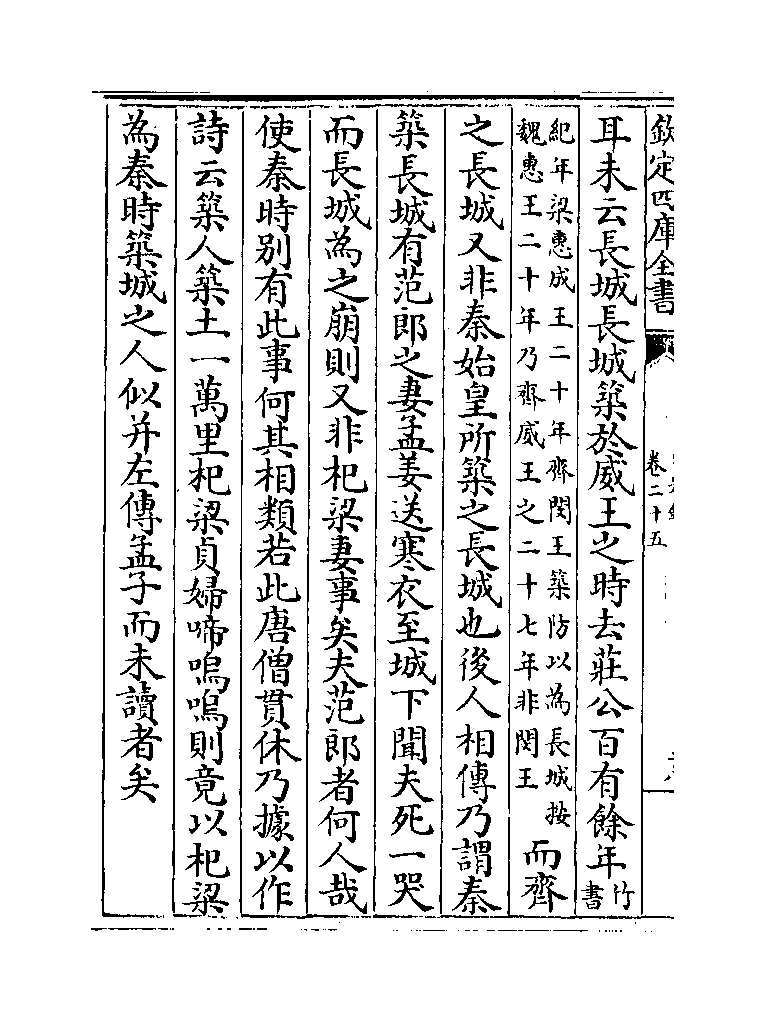 欽定四庫全書
卷二十五
耳未云長城長城築於威王之時去莊公百有餘年竹書
紀年梁惠成王二十年齊閔王築防以為長城按
魏惠王二十年乃齊威王之二十七年非閔王
而齊
之長城又非秦始皇所築之長城也後人相傳乃謂秦
築長城有范郎之妻孟姜送寒衣至城下聞夫死一哭
而長城為之崩則又非杞梁妻事矣夫范郎者何人哉
使秦時別有此事何其相類若此唐僧貫休乃據以作
詩云築人築土一萬里杞梁貞婦啼嗚嗚則竟以杞梁
為秦時築城之人似并左傳孟子而未讀者矣